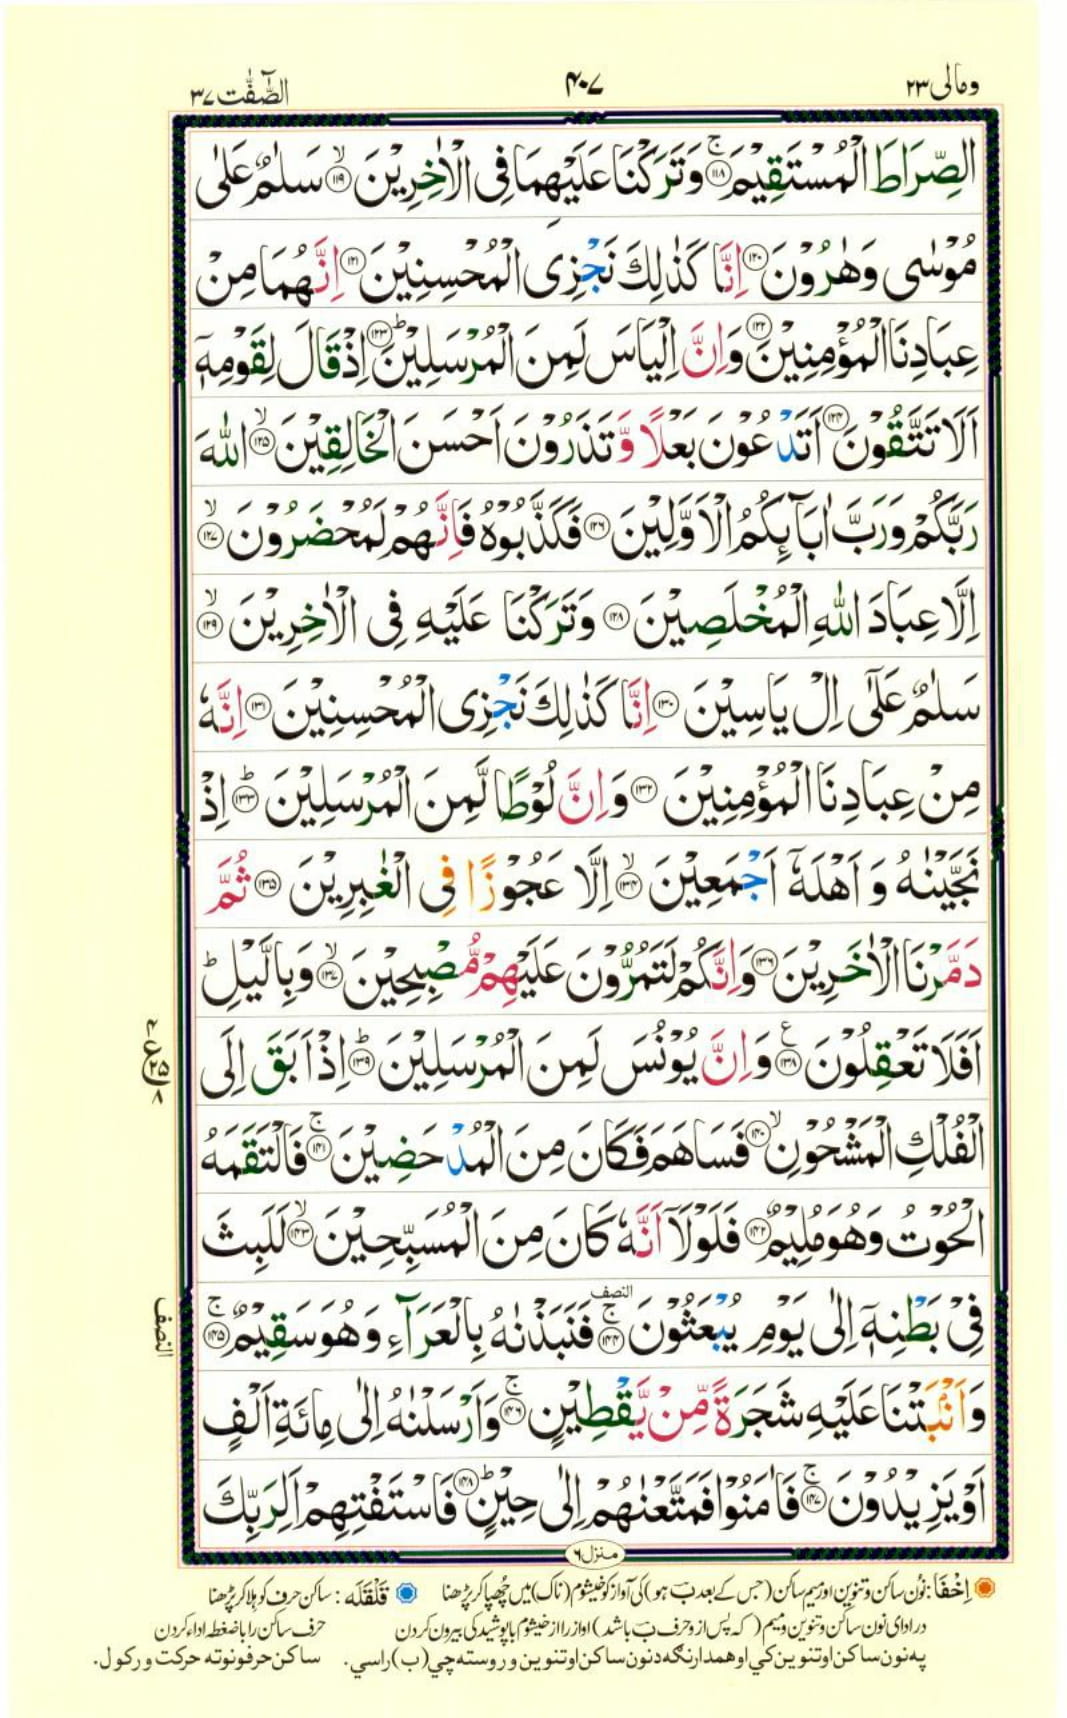 ومالی ٢٣
٤٠٧
الصّٰٓفّٰت ٣٧
الصِّرَاطَ الْمُسْتَقِيْمَ ۚ‏﴿١١٨﴾ وَتَرَكْنَا عَلَيْهِمَا فِى الْاٰخِرِيْنَ ۙ‏﴿١١٩﴾ سَلٰمٌ عَلٰى
مُوْسٰى وَهٰرُوْنَ ﴿١٢٠﴾ اِنَّا كَذٰلِكَ نَجْزِى الْمُحْسِنِيْنَ ﴿١٢١﴾ اِنَّهُمَا مِنْ
عِبَادِنَا الْمُؤْمِنِيْنَ ﴿١٢٢﴾ وَاِنَّ اِلْيَاسَ لَمِنَ الْمُرْسَلِيْنَ ؕ‏﴿١٢٣﴾ اِذْ قَالَ لِقَوْمِهٖۤ
اَلَا تَتَّقُوْنَ ﴿١٢٤﴾ اَتَدْعُوْنَ بَعْلًا وَّتَذَرُوْنَ اَحْسَنَ الْخَالِقِيْنَ ۙ‏﴿١٢٥﴾ اللّٰهَ
رَبَّكُمْ وَرَبَّ اٰبَآئِكُمُ الْاَوَّلِيْنَ ﴿١٢٦﴾ فَكَذَّبُوْهُ فَاِنَّهُمْ لَمُحْضَرُوْنَ ۙ‏﴿١٢٧﴾
اِلَّا عِبَادَ اللّٰهِ الْمُخْلَصِيْنَ ﴿١٢٨﴾ وَتَرَكْنَا عَلَيْهِ فِى الْاٰخِرِيْنَ ۙ‏﴿١٢٩﴾
سَلٰمٌ عَلٰٓى اِلْ يَاسِيْنَ ﴿١٣٠﴾ اِنَّا كَذٰلِكَ نَجْزِى الْمُحْسِنِيْنَ ﴿١٣١﴾ اِنَّهٗ
مِنْ عِبَادِنَا الْمُؤْمِنِيْنَ ﴿١٣٢﴾ وَاِنَّ لُوْطًا لَّمِنَ الْمُرْسَلِيْنَ ؕ‏﴿١٣٣﴾ اِذْ
نَجَّيْنٰهُ وَ اَهْلَهٗۤ اَجْمَعِيْنَ ۙ‏﴿١٣٤﴾ اِلَّا عَجُوْزًا فِى الْغٰبِرِيْنَ ﴿١٣٥﴾ ثُمَّ
دَمَّرْنَا الْاٰخَرِيْنَ ﴿١٣٦﴾ وَاِنَّكُمْ لَتَمُرُّوْنَ عَلَيْهِمْ مُّصْبِحِيْنَ ۙ‏﴿١٣٧﴾ وَبِالَّيْلِ ؕ
اَفَلَا تَعْقِلُوْنَ ‏﴿١٣٨﴾ ع وَاِنَّ يُوْنُسَ لَمِنَ الْمُرْسَلِيْنَ ؕ‏﴿١٣٩﴾ اِذْ اَبَقَ اِلَى
الْفُلْكِ الْمَشْحُوْنِ ۙ‏﴿١٤٠﴾ فَسَاهَمَ فَكَانَ مِنَ الْمُدْحَضِيْنَ ۚ‏﴿١٤١﴾ فَالْتَقَمَهُ
الْحُوْتُ وَهُوَ مُلِيْمٌ ﴿١٤٢﴾ فَلَوْلَاۤ اَنَّهٗ كَانَ مِنَ الْمُسَبِّحِيْنَ ۙ‏﴿١٤٣﴾ لَلَبِثَ
فِىْ بَطْنِهٖۤ اِلٰى يَوْمِ يُبْعَثُوْنَ ۚ‏﴿١٤٤﴾ النصف فَنَبَذْنٰهُ بِالْعَرَآءِ وَهُوَ سَقِيْمٌ ۚ‏﴿١٤٥﴾
وَاَنْۢبَتْنَا عَلَيْهِ شَجَرَةً مِّنْ يَّقْطِيْنٍ ۚ‏﴿١٤٦﴾ وَاَرْسَلْنٰهُ اِلٰى مِائَةِ اَلْفٍ
اَوْ يَزِيْدُوْنَ ۚ‏﴿١٤٧﴾ فَاٰمَنُوْا فَمَتَّعْنٰهُمْ اِلٰى حِيْنٍ ؕ‏﴿١٤٨﴾ فَاسْتَفْتِهِمْ اَلِرَبِّكَ
ع ٢٥
النصف
منزل ٦
اِخْفَا: نُون ساکن وتنوین اور میم ساکن (جس کے بعد بَ ہو) کی آواز کو خیشوم (ناک) میں چُھپا کر پڑھنا قَلْقَلَه: ساکن حرف کو ہلا کر پڑھنا
در ادای نون ساکن وتنوین ومیم (که پس از و حرف بَ باشد) اواز را از خیشوم با پوشیدگی بیرون کردن حرف ساکن را باضغطه اداء کردن
په نون ساکن اوتنوین کي او همدارنګه د نون ساکن اوتنوین وروسته چي (ب) راسي. ساکن حرفونو ته حرکت ورکول.